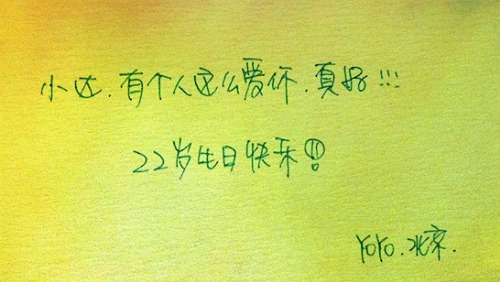 小达.有个人这么爱你.真好!!!
22岁生日快乐!!
YOYO.北京.